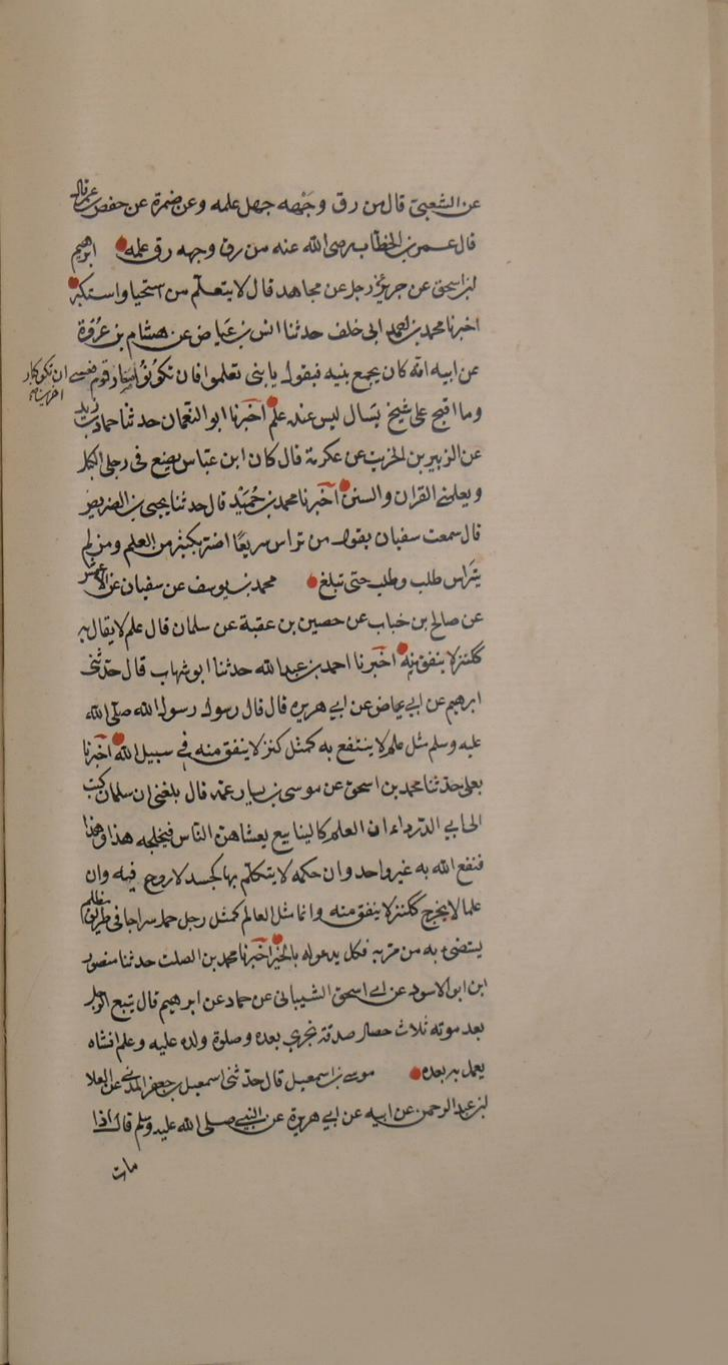 عن الشعبي قال من رق وجهه جهل علمه وعن ضمرة عن حفص عن قال
قال عمر بن الخطاب رضي الله عنه من رق وجهه رق علمه ابرهيم
ابن اسحق عن جرير عن رجل عن مجاهد قال لا يتعلم من استحيا واستكبر
اخبرنا محمد بن احمد ابي خلف حدثنا انس بن عياض عن هشام بن عروة
عن ابيه انه كان يجمع بنيه فيقول يا بني تعلموا فان تكونوا صغار قوم فعسى ان تكونوا كبار
اخرين
وما اقبح على شيخ يسال ليس عنده علم اخبرنا ابو النعمان حدثنا حماد بن زيد
عن الزبير بن الخريت عن عكرمة قال كان ابن عباس يضع في رجلي الكبل
ويعلمني القران والسنن اخبرنا محمد بن حميد قال حدثنا يحيى بن الضريس
قال سمعت سفيان يقول من تراس سريعا اضر بكثير من العلم ومن لم
يتراس طلب وطلب حتى تبلغ محمد بن يوسف عن سفيان عن الاعمش
عن صالح بن خباب عن حصين بن عقبة عن سلمان قال علم لا يقال به
ككنز لا ينفق منه اخبرنا احمد بن عبد الله حدثنا ابو شهاب قال حدثني
ابرهيم عن ابي عياض عن ابي هريرة قال قال رسول رسول الله صلى الله
عليه وسلم مثل علم لا ينتفع به كمثل كنز لا ينفق منه في سبيل الله اخبرنا
يعلى حدثنا محمد بن اسحق عن موسى بن يسار عمه قال بلغني ان سلمان كتب
الى ابي الدرداء ان العلم كالينابيع يغشاهن الناس فيختلجه هذا وهذا
فنفع الله به غير واحد وان حكمة لا يتكلم بها كجسد لا روح فيه وان
علما لا يخرج ككنز لا ينفق منه وانما مثل العالم كمثل رجل حمل سراجا في طريق مظلم
يستضيء به من مر به فكل يدعو له بالخير اخبرنا محمد بن الصلت حدثنا منصور
ابن ابي الاسود عن ابي اسحق الشيباني عن حماد عن ابرهيم قال يتبع الرجل
بعد موته ثلاث خصال صدقة تجري بعده وصلوة ولده عليه وعلم افشاه
يعمل به بعده موسى بن اسمعيل قال حدثني اسمعيل بن جعفر المدني عن العلا
ابن عبد الرحمن عن ابيه عن ابي هريرة عن النبي صلى الله عليه وسلم قال اذا
مات